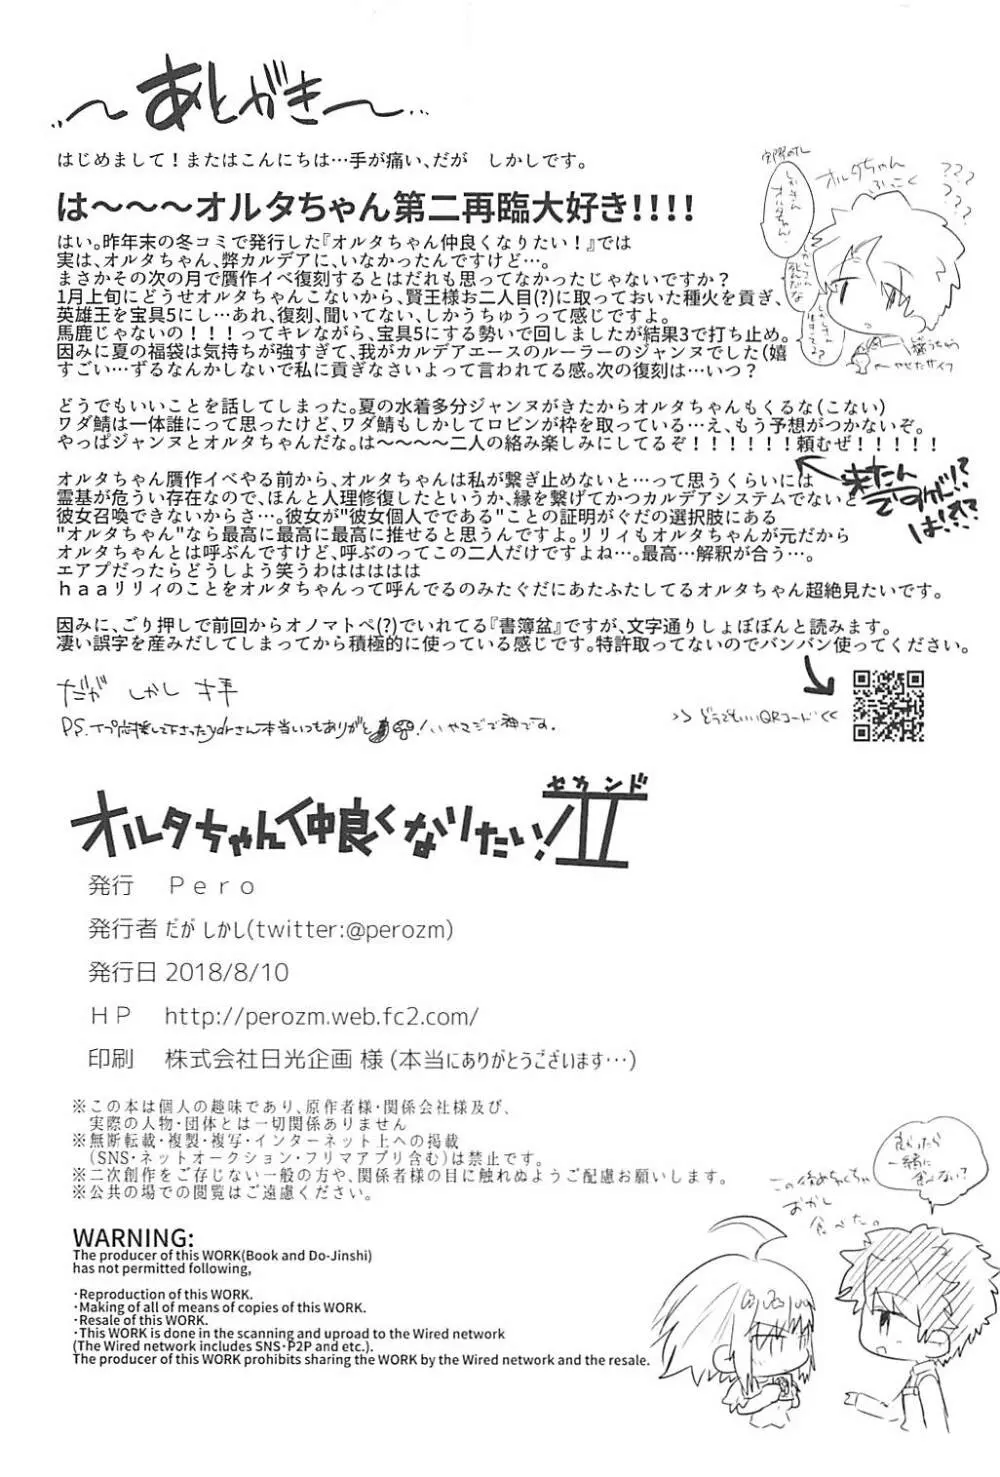 ～あとがき～…
はじめまして！またはこんにちは…手が痛い、だが　しかしです。
は～～～オルタちゃん第二再臨大好き!!!!
はい。昨年末の冬コミで発行した『オルタちゃん仲良くなりたい！』では
実は、オルタちゃん、弊カルデアに、いなかったんですけど…。
まさかその次の月で贋作イベ復刻するとはだれも思ってなかったじゃないですか？
1月上旬にどうせオルタちゃんこないから、賢王様お二人目(?)に取っておいた種火を貢ぎ、
英雄王を宝具5にし…あれ、復刻、聞いてない、しかうちゅうって感じですよ。
馬鹿じゃないの！！！ってキレながら、宝具5にする勢いで回しましたが結果3で打ち止め。
因みに夏の福袋は気持ちが強すぎて、我がカルデアエースのルーラーのジャンヌでした(嬉
すごい…ずるなんかしないで私に貢ぎなさいよって言われてる感。次の復刻は…いつ？
どうでもいいことを話してしまった。夏の水着多分ジャンヌがきたからオルタちゃんもくるな(こない)
ワダ鯖は一体誰にって思ったけど、ワダ鯖もしかしてロビンが枠を取っている…え、もう予想がつかないぞ。
やっぱジャンヌとオルタちゃんだな。は～～～～二人の絡み楽しみにしてるぞ！！！！！！頼むぜ！！！！！
来たん
ですが!!?
は!?!?
オルタちゃん贋作イベやる前から、オルタちゃんは私が繋ぎ止めないと…って思うくらいには
霊基が危うい存在なので、ほんと人理修復したというか、縁を繋げてかつカルデアシステムでないと
彼女召喚できないからさ…。彼女が"彼女個人でである"ことの証明がぐだの選択肢にある
"オルタちゃん"なら最高に最高に最高に推せると思うんですよ。リリィもオルタちゃんが元だから
オルタちゃんとは呼ぶんですけど、呼ぶのってこの二人だけですよね…。最高…解釈が合う…。
エアプだったらどうしよう笑うわははははは
ｈａａリリィのことをオルタちゃんって呼んでるのみたぐだにあたふたしてるオルタちゃん超絶見たいです。
因みに、ごり押しで前回からオノマトペ(?)でいれてる『書簿盆』ですが、文字通りしょぼぼんと読みます。
凄い誤字を産みだしてしまってから積極的に使っている感じです。特許取ってないのでバンバン使ってください。
だが しかし 拝
>> どうでもいいQRコード <<
オルタちゃん仲良くなりたい！II
セカンド
発行　Ｐｅｒｏ
発行者 だが しかし(twitter:@perozm)
発行日 2018/8/10
ＨＰ　http://perozm.web.fc2.com/
印刷　株式会社日光企画 様 (本当にありがとうございます…)
※この本は個人の趣味であり、原作者様・関係会社様及び、
実際の人物・団体とは一切関係ありません
※無断転載・複製・複写・インターネット上への掲載
(SNS・ネットオークション・フリマアプリ含む)は禁止です。
※二次創作をご存じない一般の方や、関係者様の目に触れぬようご配慮お願いします。
※公共の場での閲覧はご遠慮ください。
この後めちゃくちゃ
おかし
食べた。
良かったら
一緒に
食べない？
WARNING:
The producer of this WORK(Book and Do-Jinshi)
has not permitted following,
・Reproduction of this WORK.
・Making of all of means of copies of this WORK.
・Resale of this WORK.
・This WORK is done in the scanning and uproad to the Wired network
(The Wired network includes SNS・P2P and etc.).
The producer of this WORK prohibits sharing the WORK by the Wired network and the resale.